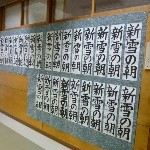 新雪の朝
新雪の朝
新雪の朝
新雪の朝
新雪の朝
新雪の朝
新雪の朝
新雪の朝
新雪の朝
新雪の朝
新雪の朝
新雪の朝
新雪の朝
新雪の朝
新雪の朝
新雪の朝
新雪の朝